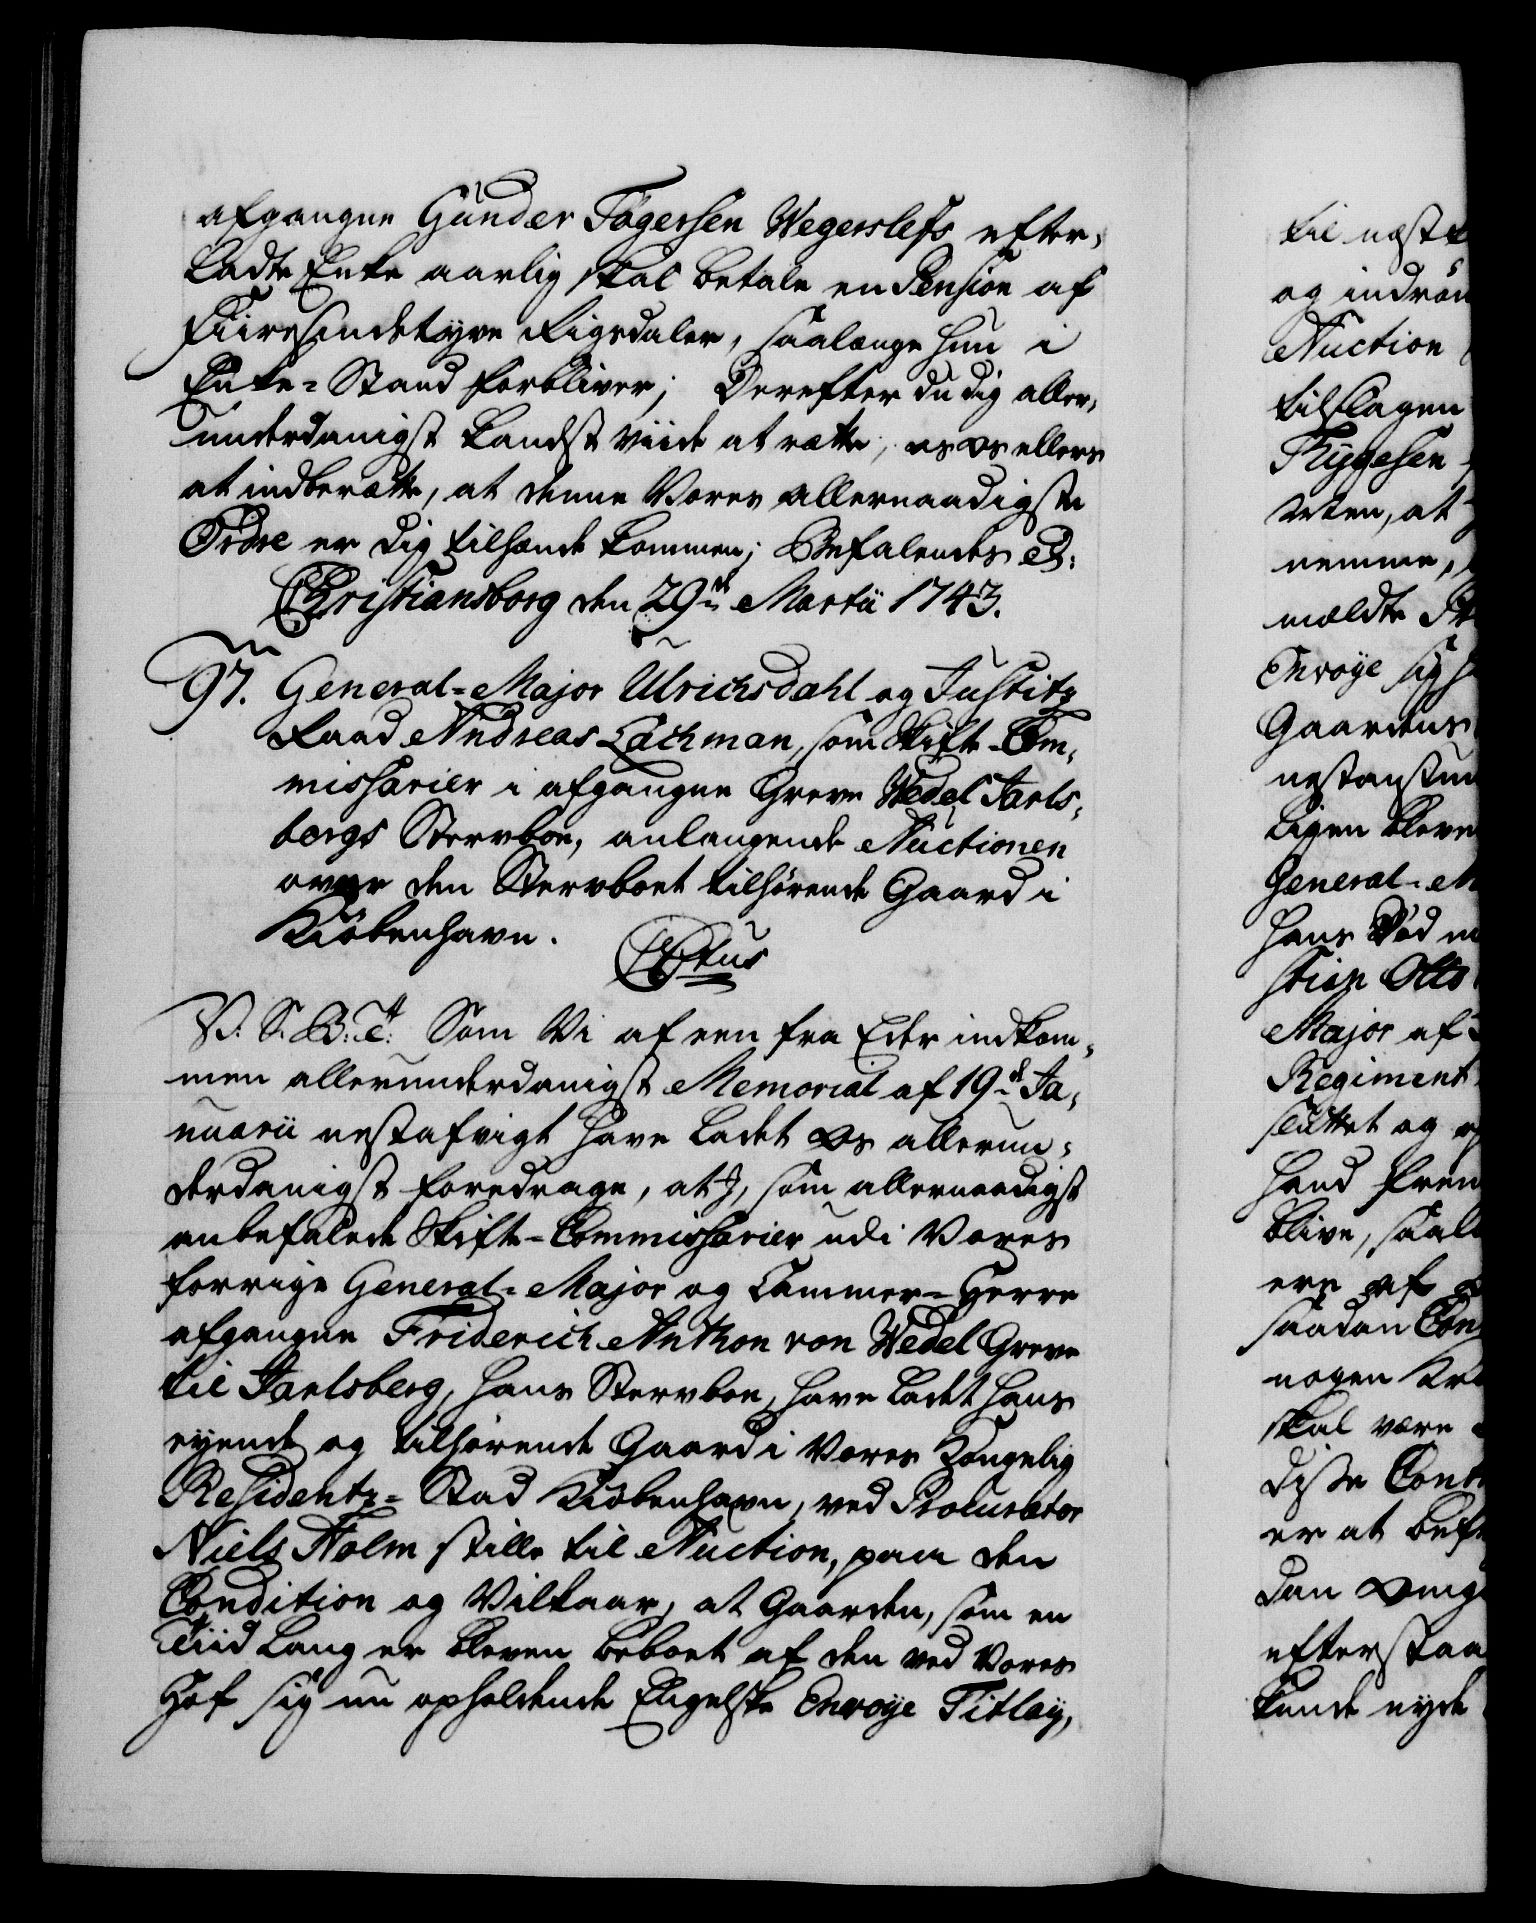 afgangne Gunder Tøgersen Wegerslefs efter,
ladte Enke aarlig skal betale en Pension af
Fiiresindstyve Rigsdaler, saalænge hun i
Enke-Stand forbliver; Derefter du dig aller,
underdanigst kandst viide at rætte, og os ellers
at indberætte, at denne Vores allernaadigste
Ordre er dig tilhænde kommen; Befalendes &:
Christiansborg den 29de Martii 1743.
97. General-Major Ulrichsdahl og Justitz
Raad Andreas Lachman, som Skifte-Com,
missarier i afgangne Greve Wedel Jarls,
bergs Sterboe, anlangende Auctionen
over den Sterboet tilhørende Gaard i
Kiøbenhavn.
V: S: B: T: Som Vi af een fra Eder indkom,
men allerunderdanigst Memorial af 19de Ja,
nuarii nestafvigt have ladet Os allerun,
derdanigst foredrage, at I, som allernaadigst
anbefalede Skifte-Commissarier udi Vores
forrige General-Major og Cammer-Herre
afgangne Friderich Anthon von Wedel Greve
til Jarlsberg, hans Sterboe, have ladet hans
eyende og tilhørende Gaard i Vores Kongelig
Residentz-Stad Kiøbenhavn, ved Procurator
Niels Holm stille til Auction, paa den
Condition og Vilkaar, at Gaarden, som en
Tiid lang er bleven beboet af den ved Vores
Hof sig nu opholdende Engelske Envoye Titley,
til næst
og indrøm
Auction
tilslagen
Thygesen
Acten, at
nemme,
mældte
Envoye sig
Gaardens
nestanstun
ligen bleve
General-M
hans Død
stian Otto
Major af
Regiment
sluttet og
hand frem
blive, saal
ere af
saadan Con
nogen
skal være
disse Cont
er at bef
dan
efterstaa
kunde nyde